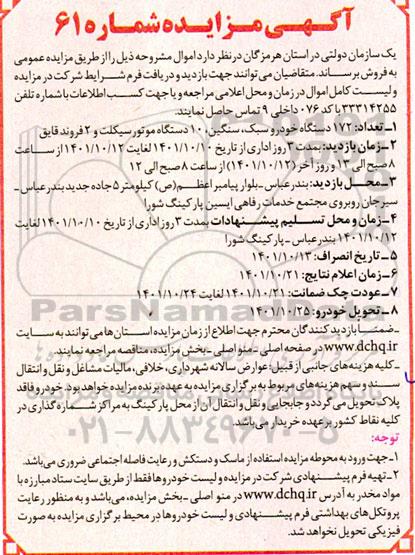 آگهی مزایده شماره ۶۱
یک سازمان دولتی در استان هرمزگان در نظر دارد اموال مشروحه ذیل را از طریق مزایده عمومی
به فروش برساند. متقاضیان می توانند جهت بازدید و دریافت فرم شرایط شرکت در مزایده
و لیست کامل اموال در زمان و محل اعلامی مراجعه و یا جهت کسب اطلاعات با شماره تلفن
۳۳۳۱۴۲۵۵ با کد ۰۷۶ داخلی ۹ تماس حاصل نمایند.
۱- تعداد: ۱۷۲ دستگاه خودرو سبک، سنگین، ۱۰۰ دستگاه موتور سیکلت و ۲ فروند قایق
۲- زمان بازدید: بمدت ۳ روز اداری از تاریخ ۱۴۰۱/۱۰/۱۰ لغایت ۱۴۰۱/۱۰/۱۲ از ساعت
۸ صبح الی ۱۳ و روز آخر (۱۴۰۱/۱۰/۱۲) از ساعت ۸ صبح الی ۱۲
۳- محل بازدید: بندرعباس- بلوار پیامبر اعظم(ص) کیلومتر ۵ جاده جدید بندرعباس-
سیرجان روبروی مجتمع خدمات رفاهی ایسین پارکینگ شورا
۴- زمان و محل تسلیم پیشنهادات بمدت ۳ روز اداری از تاریخ ۱۴۰۱/۱۰/۱۰ لغایت
۱۴۰۱/۱۰/۱۲ بندرعباس - پارکینگ شورا
۵- تاریخ انصراف: ۱۴۰۱/۱۰/۱۳
۶- زمان اعلام نتایج: ۱۴۰۱/۱۰/۲۱
۷- عودت چک ضمانت: ۱۴۰۱/۱۰/۲۱ لغایت ۱۴۰۱/۱۰/۲۴
۸- تحویل خودرو: ۱۴۰۱/۱۰/۲۵
- ضمنا بازدید کنندگان محترم جهت اطلاع از زمان مزایده استان ها می توانند به سایت
www.dchq.ir در صفحه اصلی - منو اصلی - بخش مزایده، مناقصه مراجعه نمایند.
- کلیه هزینه های جانبی از قبیل: عوارض سالانه شهرداری، خلافی، مالیات مشاغل و نقل و انتقال
سند و سهم هزینه های مربوط به برگزاری مزایده به عهده برنده مزایده خواهد بود. خودرو فاقد
پلاک تحویل می گردد و جابجایی و نقل و انتقال آن از محل پارکینگ به مراکز شماره گذاری در
کلیه نقاط کشور بر عهده خریدار می باشد.
توجه:
۱- جهت ورود به محوطه مزایده استفاده از ماسک و دستکش و رعایت فاصله اجتماعی ضروری می باشد.
۲- تهیه فرم پیشنهادی شرکت در مزایده و لیست خودروها فقط از طریق سایت ستاد مبارزه با
مواد مخدر به آدرس www.dchq.ir در منو اصلی - بخش مزایده، می باشد و به منظور رعایت
پروتکل های بهداشتی فرم پیشنهادی و لیست خودروها در محیط برگزاری مزایده به صورت
فیزیکی تحویل نخواهد شد.
ParsNamadData
۰۲۱-۸۸۳۴۹۶۷۰-۵